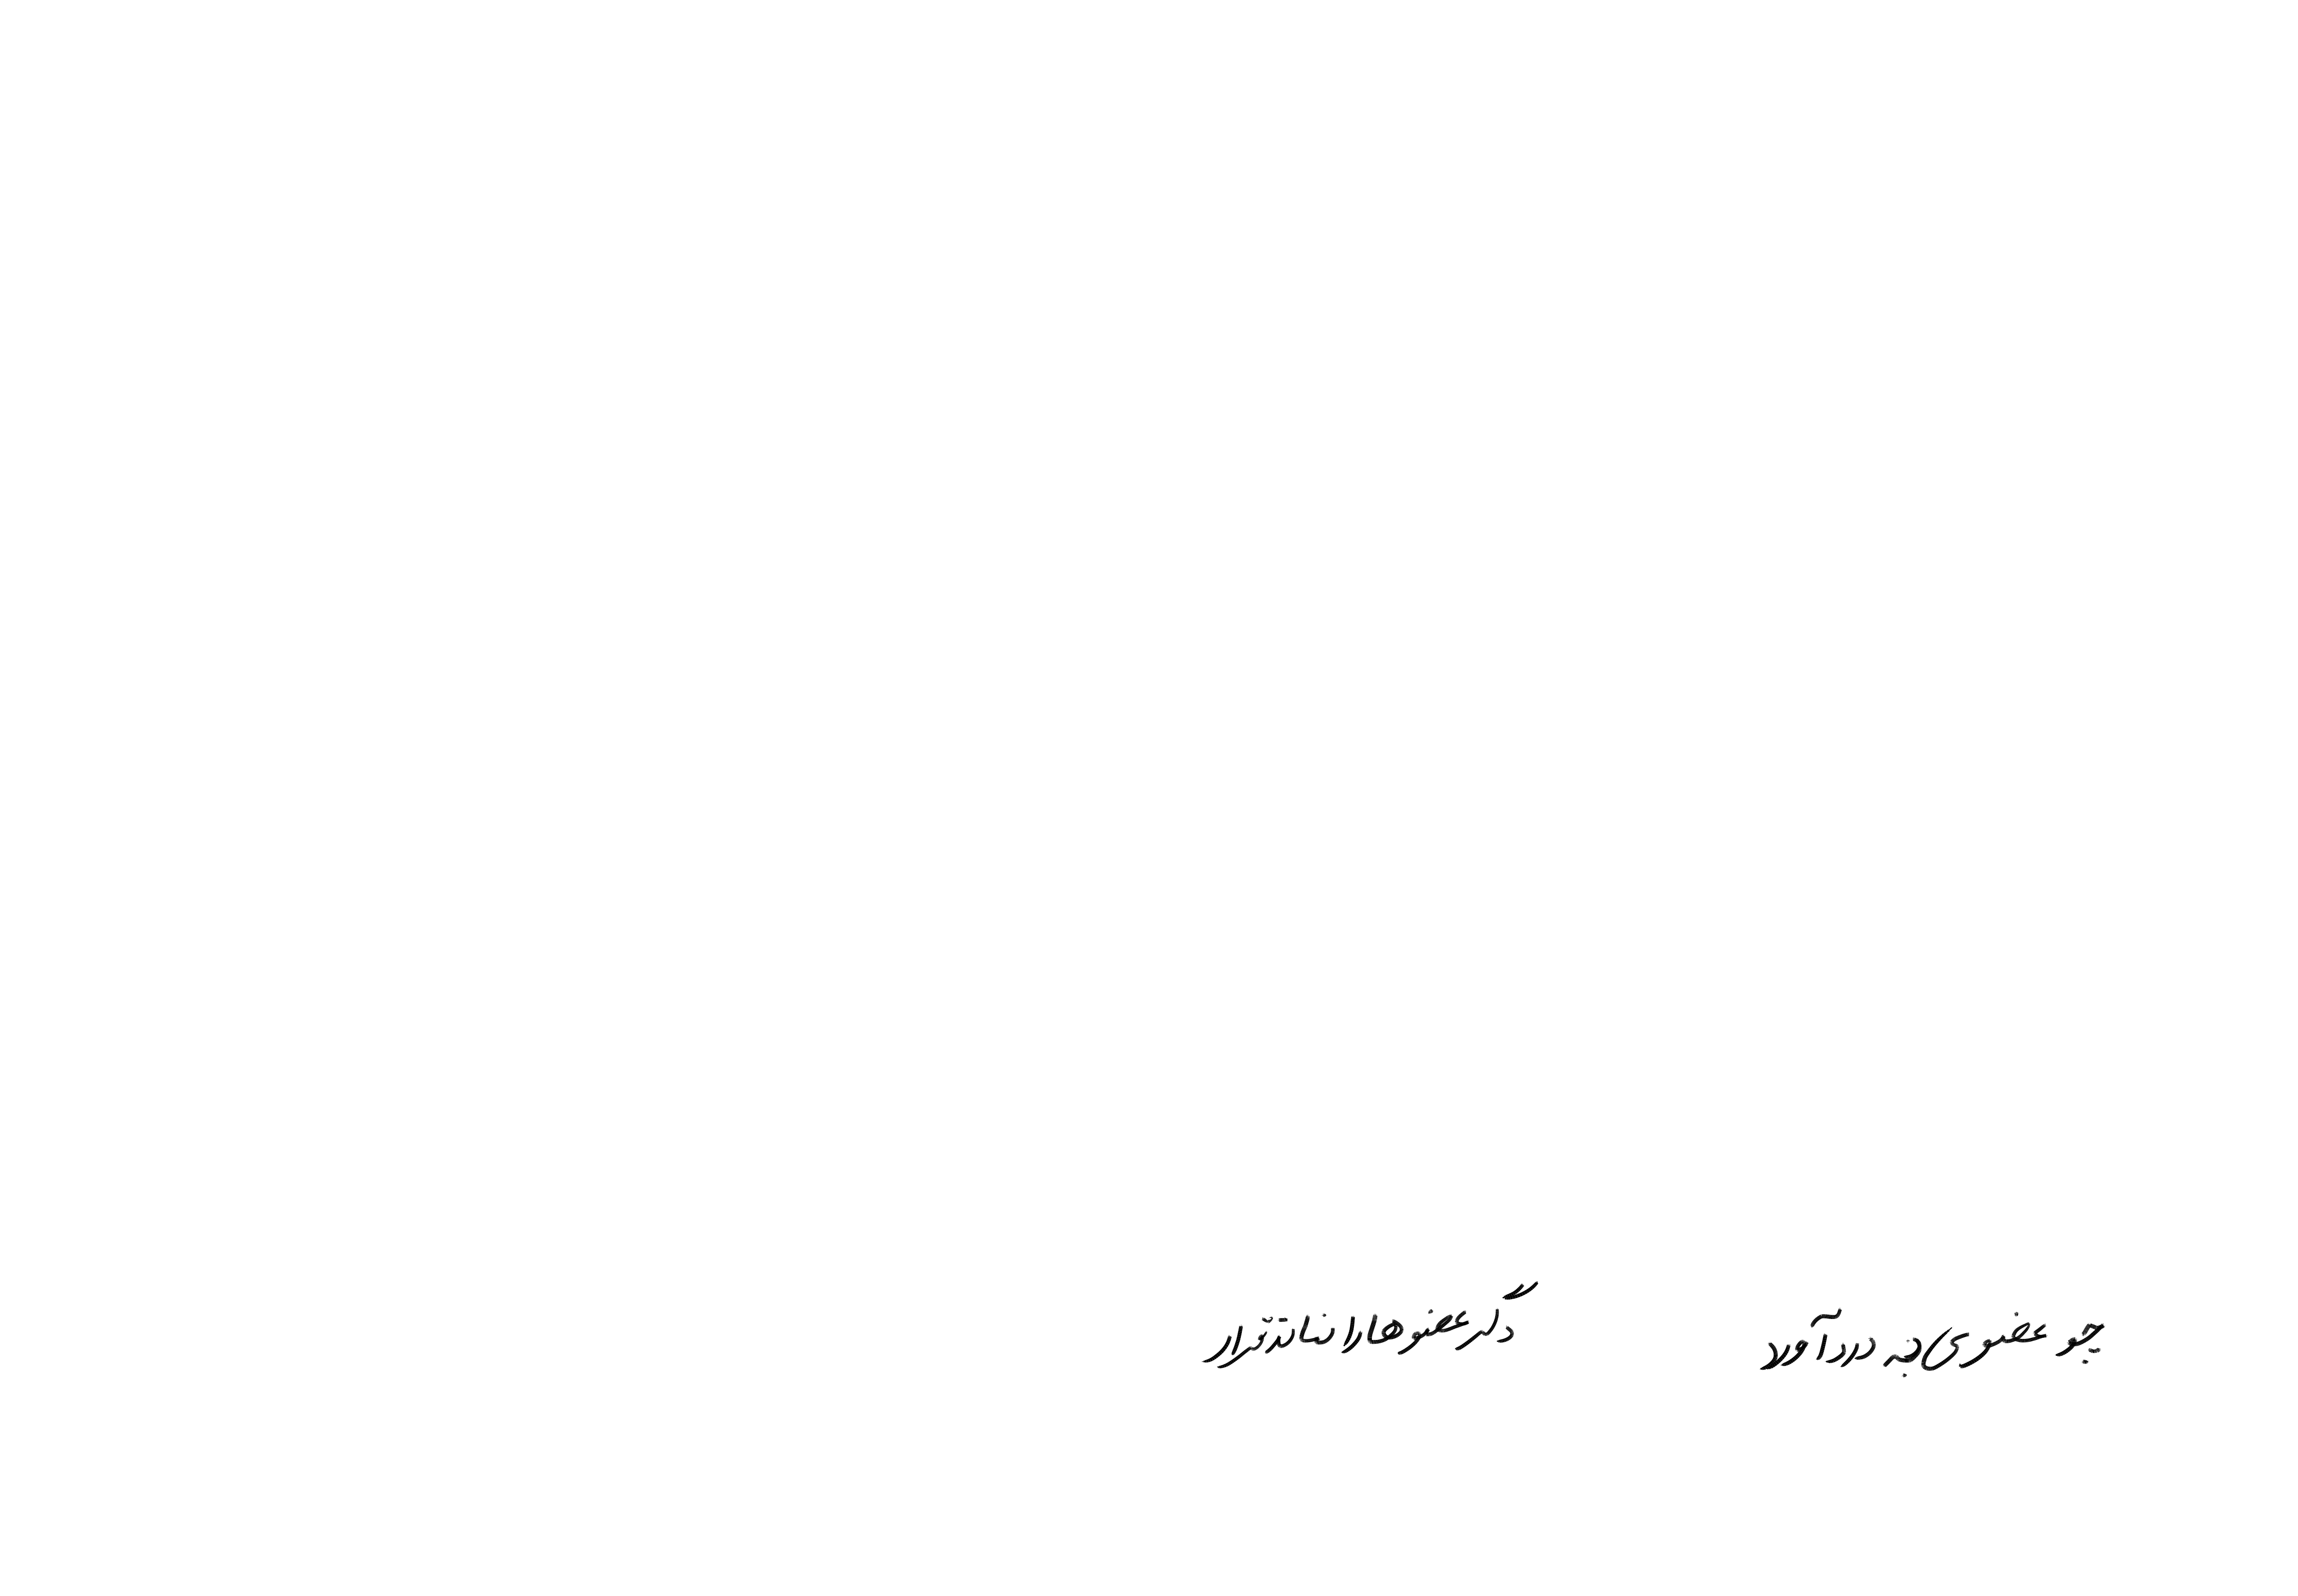 چو عضوی به درد آورد دگر عضوها را نماند قرار